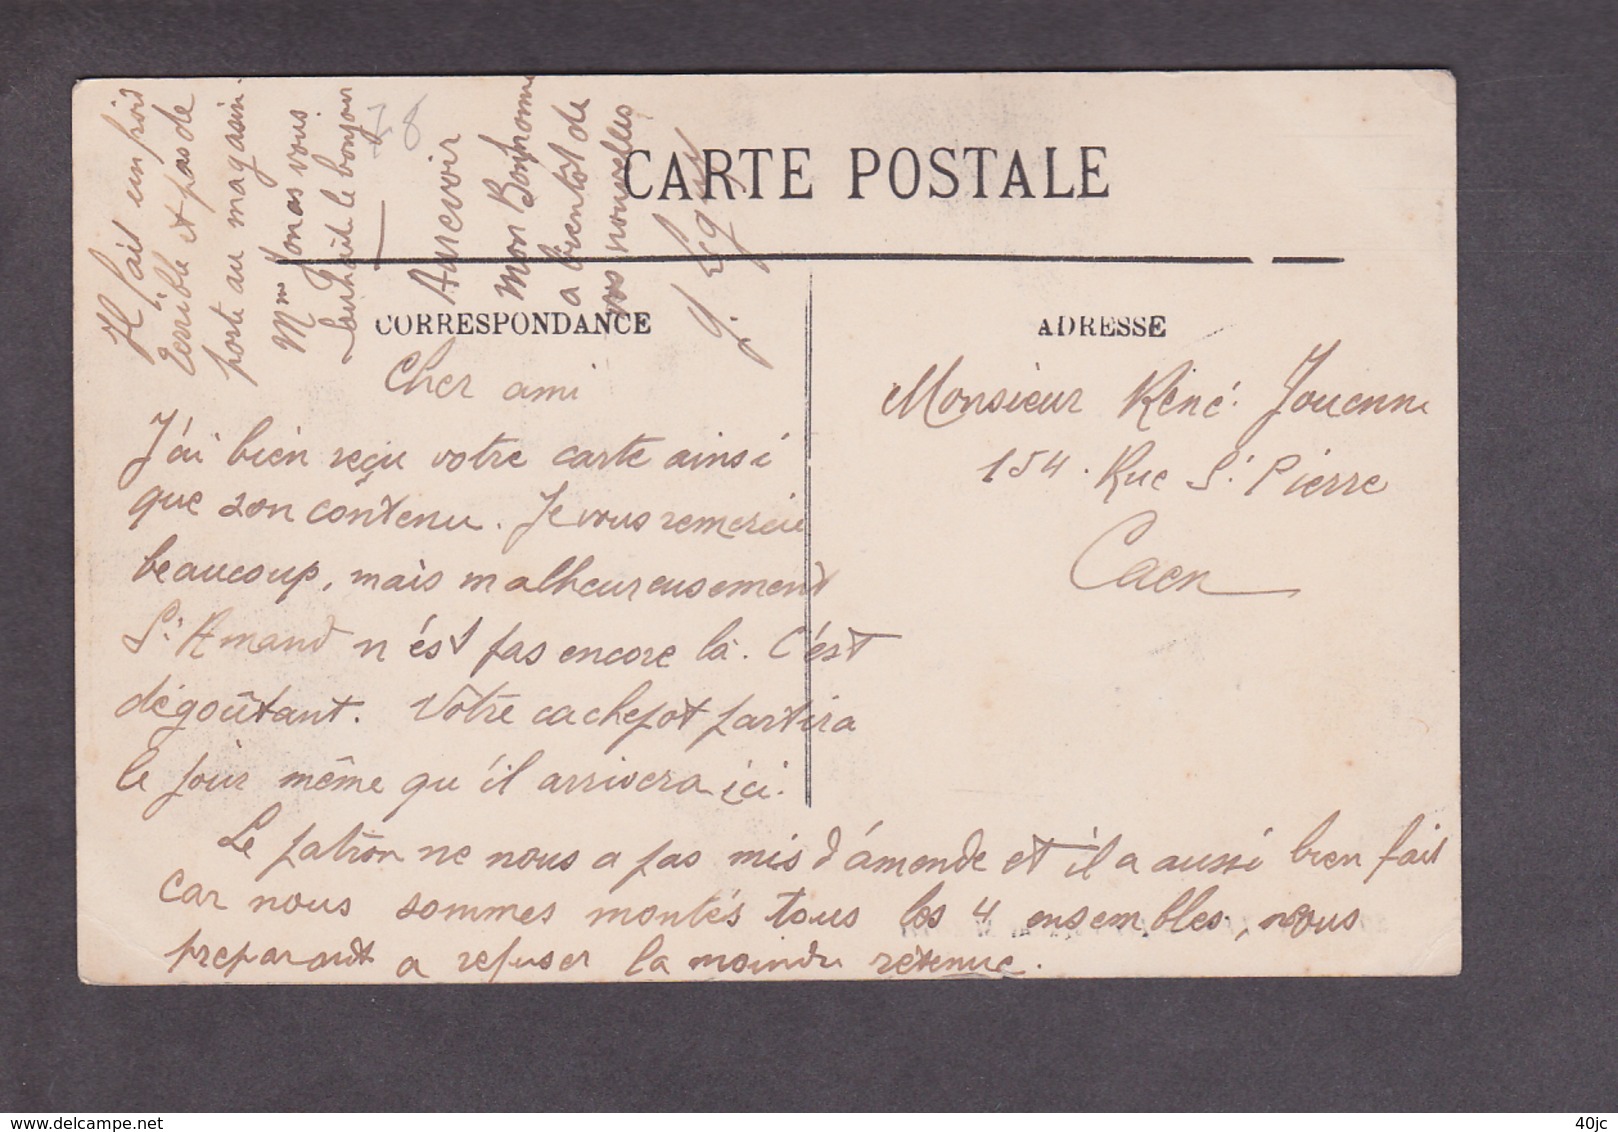 CARTE POSTALE
CORRESPONDANCE
ADRESSE
Monsieur Réné Jouenne
154. Rue St Pierre
Caen
Cher ami
J'ai bien reçu votre carte ainsi
que son contenu. Je vous remercie
beaucoup, mais malheureusement
St Amand n'ést pas encore là. C'ést
dégoûtant. Vôtre cachepot partira
le jour même qu'il arrivera ici.
Le patron ne nous a pas mis d'ámende et il a aussi bien fait
car nous sommes montés tous les 4 ensembles, nous
preparant a refuser la moindre retenue.
Il fait un froid
terrible et pas de
porte au magasin
Mme Jonas vous
souhaite le bonjour
Aurevoir
mon Bonhomme
a bientot de
vos nouvelles
78
www.delcampe.net
40jc